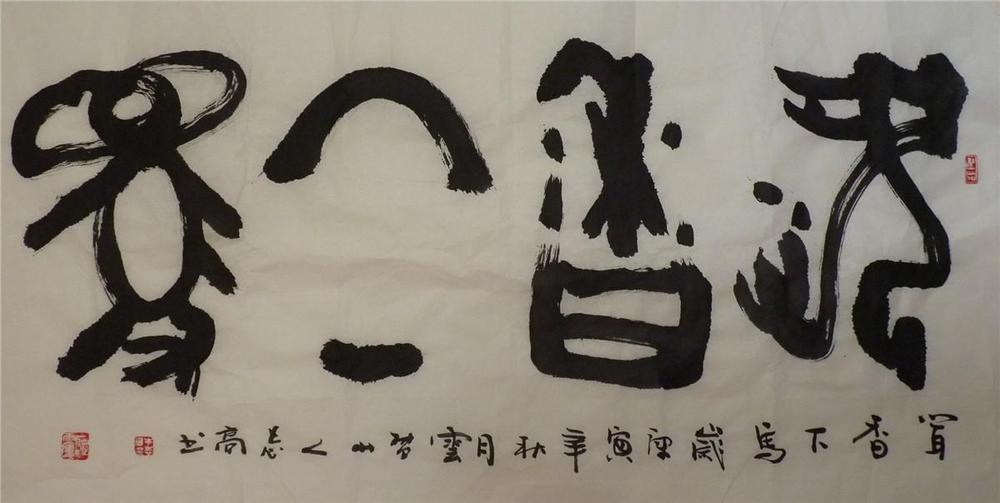 聞香下馬
聞香下馬歲庚寅辛秋月雲夢山人志高书